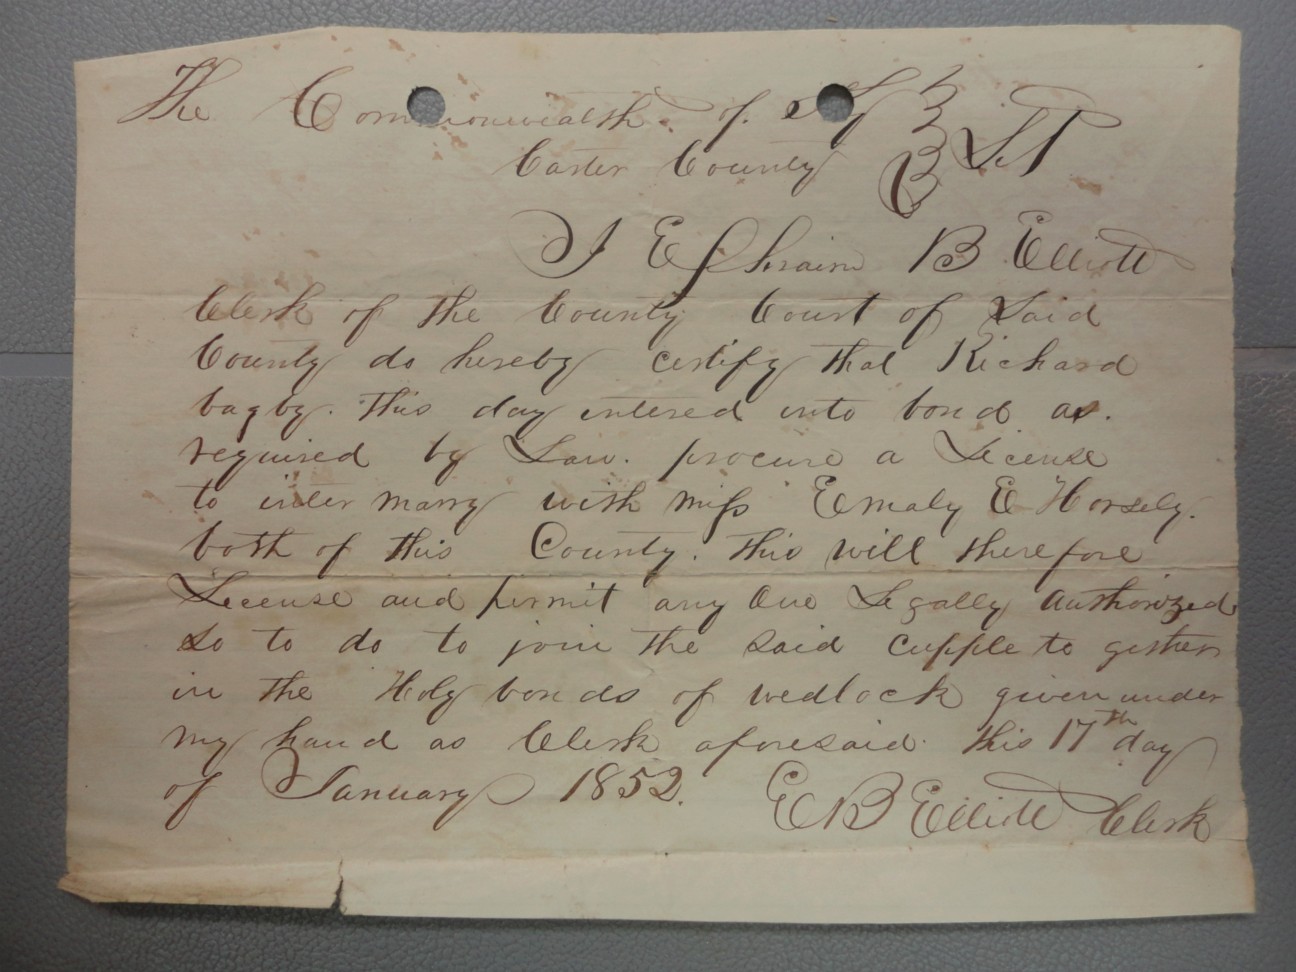 The Commonwealth of Ky } Sct
Carter County }
I Ephraim B Elliott
Clerk of the County Court of Said
County do hereby certify that Richard
bagby. this day intered into bond as.
required by Law. procure a License
to inter marry with miss Emaly E Horsely.
both of this County. this will therefore
License and permit any One Legally Authorized
so to do to join the said cupple to gether
in the Holy bonds of wedlock given under
my hand as Clerk aforesaid. this 17th day
of January 1852.
E B Elliott Clerk